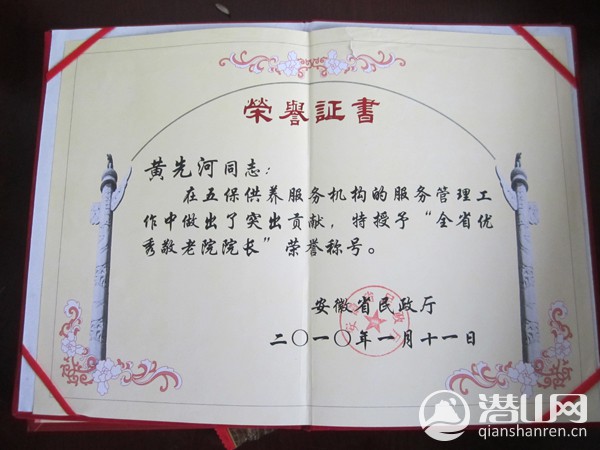 榮譽証書
黄先河同志：
在五保供养服务机构的服务管理工
作中做出了突出贡献，特授予“全省优
秀敬老院院长”荣誉称号。
安徽省民政厅
二〇一〇年一月十一日
潜山网
qianshanren.cn